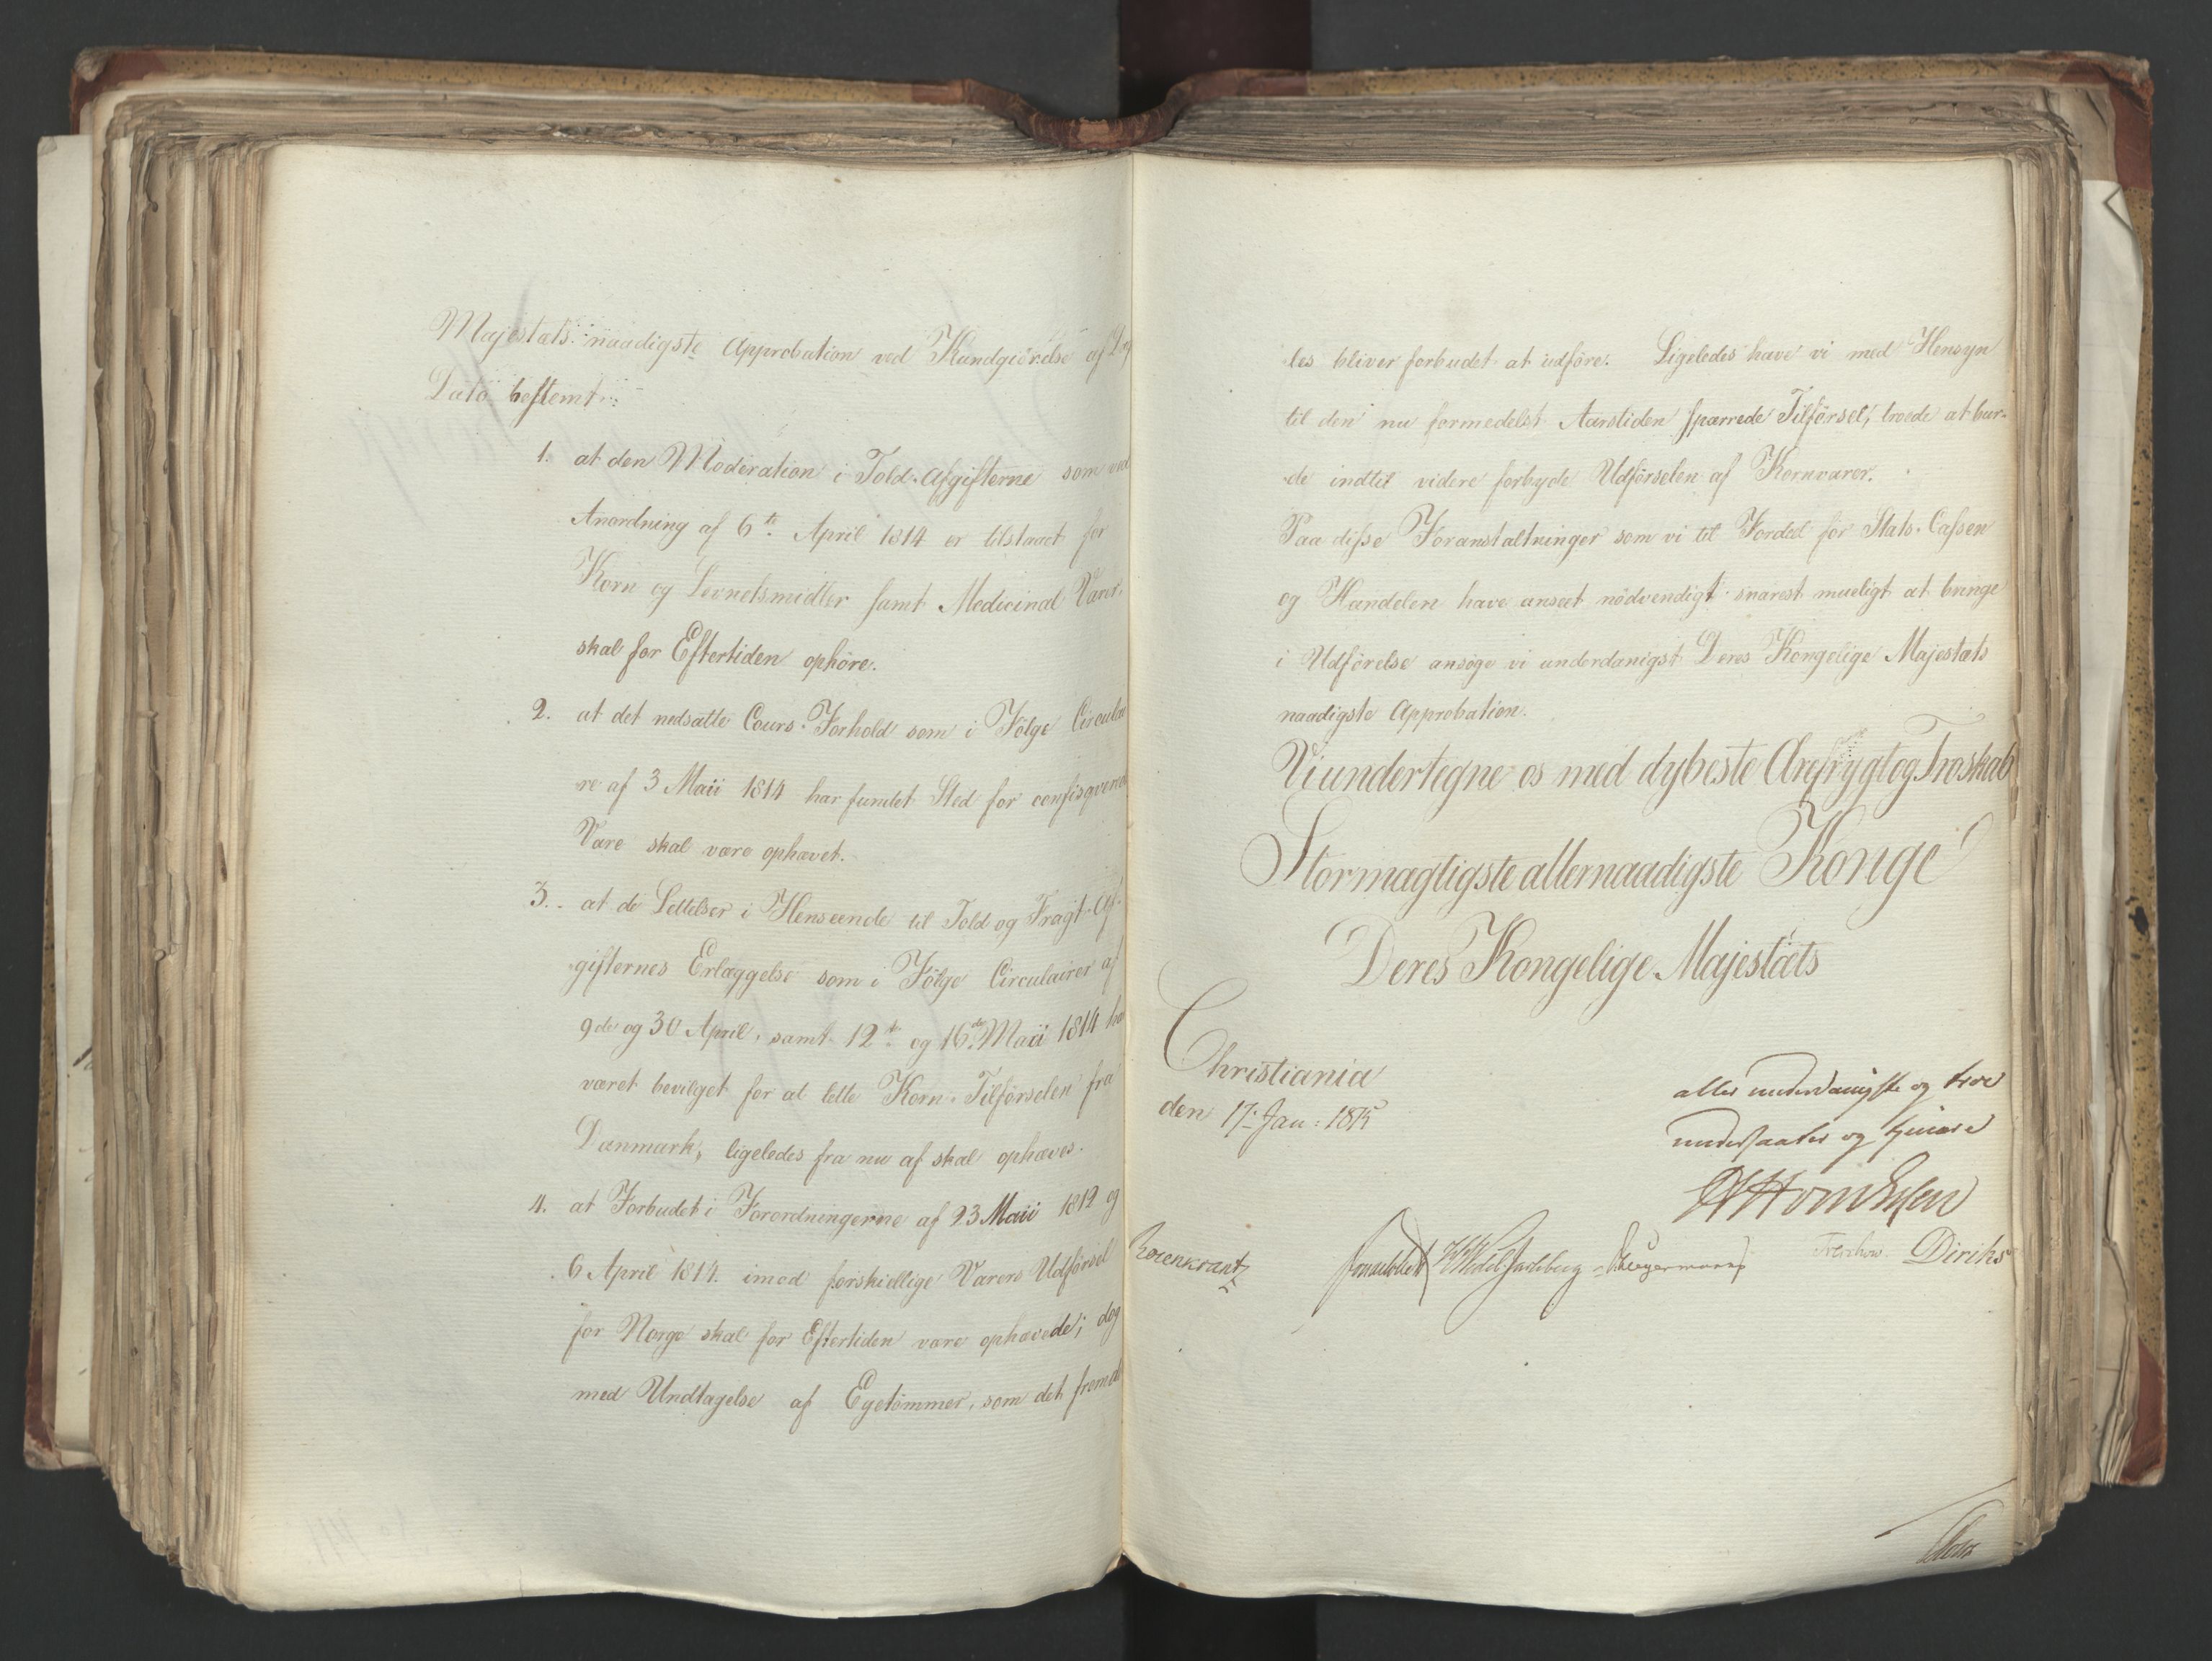 Majestæts naadigste Approbation ved Kundgiörelse af D.
Dato bestemt:
1. at den Moderation i Told-Afgifterne som ved
Anordning af 6te April 1814 er tilstaaet for
Korn og Levnetsmidler samt Medicinal Varer,
skal for Eftertiden ophöre.
2. at det nedsatte Cours-Forhold som i Fölge Circulai
re af 3 Maii 1814 har fundet Sted for confisqverede
Vare skal være ophævet.
3. at de Lettelser i Henseende til Told og Fragt-Af-
gifternes Erlæggelse som i Fölge Circulairer af
9de og 30 April, samt 12te og 16de Maii 1814 har
været bevilget for at lette Korn-Tilförselen fra
Danmark, ligeledes fra nu af skal ophæves.
4. at Forbudet i Forordningerne af 23 Maii 1812 og
6 April 1814 imod forskiellige Varers Udförsel
for Norge skal for Eftertiden være ophævede; dog
med Undtagelse af Egetömmer, som det fremde
les bliver forbudet at udföre. Ligeledes have vi med Hensyn
til den nu formedelst Aarstiden sparrede Tilförsel, troede at bur-
de indtil videre forbyde Udförselen af Kornvarer.
Paa disse Foranstaltninger som vi til Fordeel for Stats-Cassen
og Handelen have anseet nödvendigt snarest mueligt at bringe
i Udförelse ansöge vi underdanigst Deres Kongelige Majestæts
naadigste Approbation.
Vi undertegne os med dybeste Ærefrygt og Troskab
Stormægtigste allernaadigste Konge
Deres Kongelige Majestæts
Christiania
den 17- Jan: 1815
aller underdanigste og troe
undersaatter og tjenere
Rosenkrantz
Sommerhielm HWedel Jarlsberg Hegermann Treschow Diriks